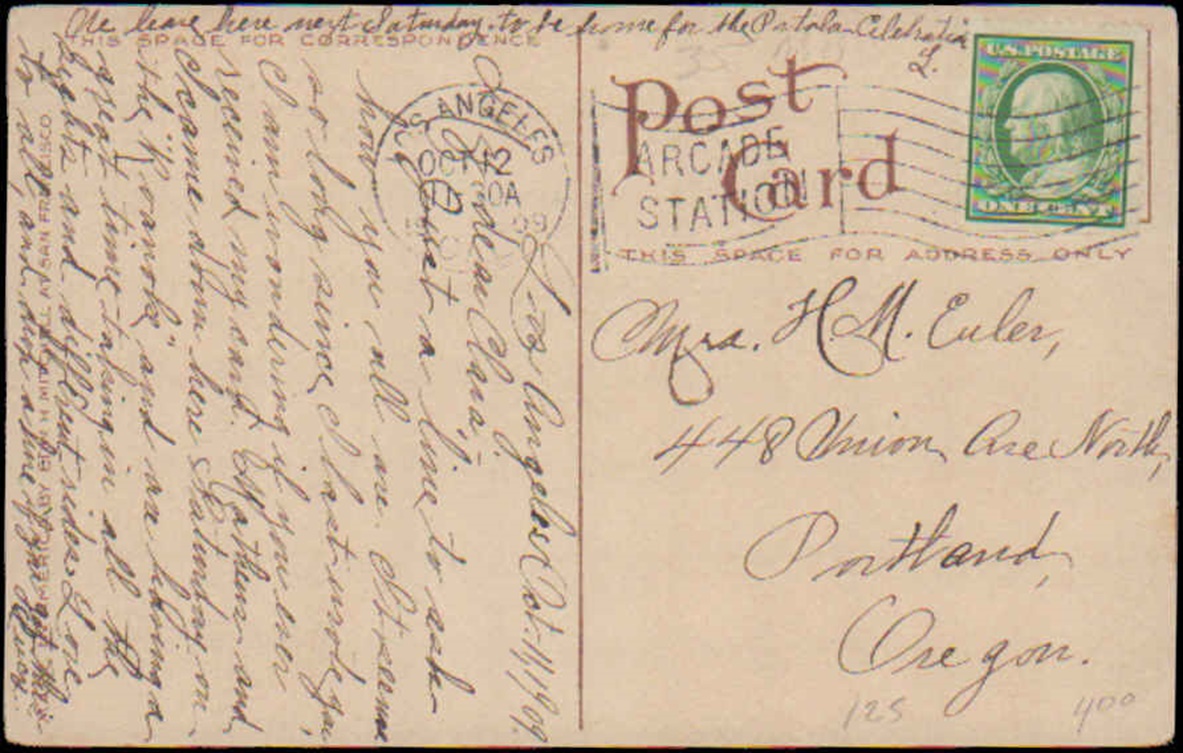 We leave here next Saturday to be home for the Portola Celebration
L.
THIS SPACE FOR CORRESPONDENCE
Los Angeles Oct. 11/09.
My dear Clara,
Just a line to ask
how you all are. It seems
so long since I last wrote you,
I am wondering if you ever
received my card. Father and
I came down here Saturday on
the "Roanoke" and are having a
great time taking in all the
sights and different rides. Love
to all, and drop a line
LOS ANGELES
OCT 12
09
ARCADE
STATION
Post
Card
U.S. POSTAGE
ONE CENT
THIS SPACE FOR ADDRESS ONLY
Mrs. H. M. Euler,
448 Union Ave North,
Portland,
Oregon.
125
400
SAN FRANCISCO